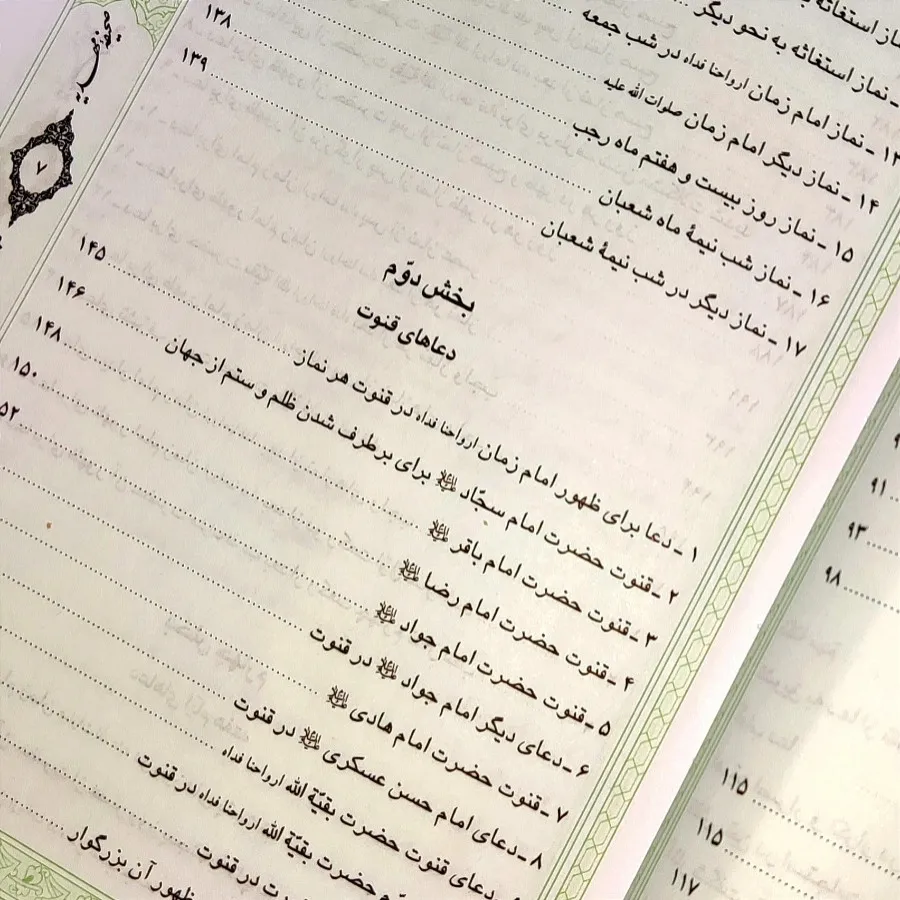 نماز استغاثه
ـ نماز استغاثه به نحو دیگر
۱۳ ـ نماز امام زمان ارواحنا فداه در شب جمعه
۱۴ ـ نماز دیگر امام زمان صلوات الله علیه
۱۵ ـ نماز روز بیست و هفتم ماه رجب
۱۶ ـ نماز شب نیمهٔ ماه شعبان ۱۳۸
۱۷ ـ نماز دیگر در شب نیمهٔ شعبان ۱۳۹
بخش دوّم
دعاهای قنوت
۱ ـ دعا برای ظهور امام زمان ارواحنا فداه در قنوت هر نماز ۱۴۵
۲ ـ قنوت حضرت امام سجّاد علیه السلام برای برطرف شدن ظلم و ستم از جهان ۱۴۶
۳ ـ قنوت حضرت امام باقر علیه السلام ۱۴۸
۴ ـ قنوت حضرت امام رضا علیه السلام ۱۵۰
۵ ـ قنوت حضرت امام جواد علیه السلام ۵۲
۶ ـ دعای دیگر امام جواد علیه السلام در قنوت
۷ ـ قنوت حضرت امام هادی علیه السلام
۸ ـ دعای امام حسن عسکری علیه السلام در قنوت
دعای قنوت حضرت بقیّة الله ارواحنا فداه
دوّم حضرت بقیّة الله ارواحنا فداه در قنوت
در قنوت
ظهور آن بزرگوار
صحیفه مهدیه
۷
۹۱
۹۳
۹۸
۱۱۵
۱۱۵
۱۱۷